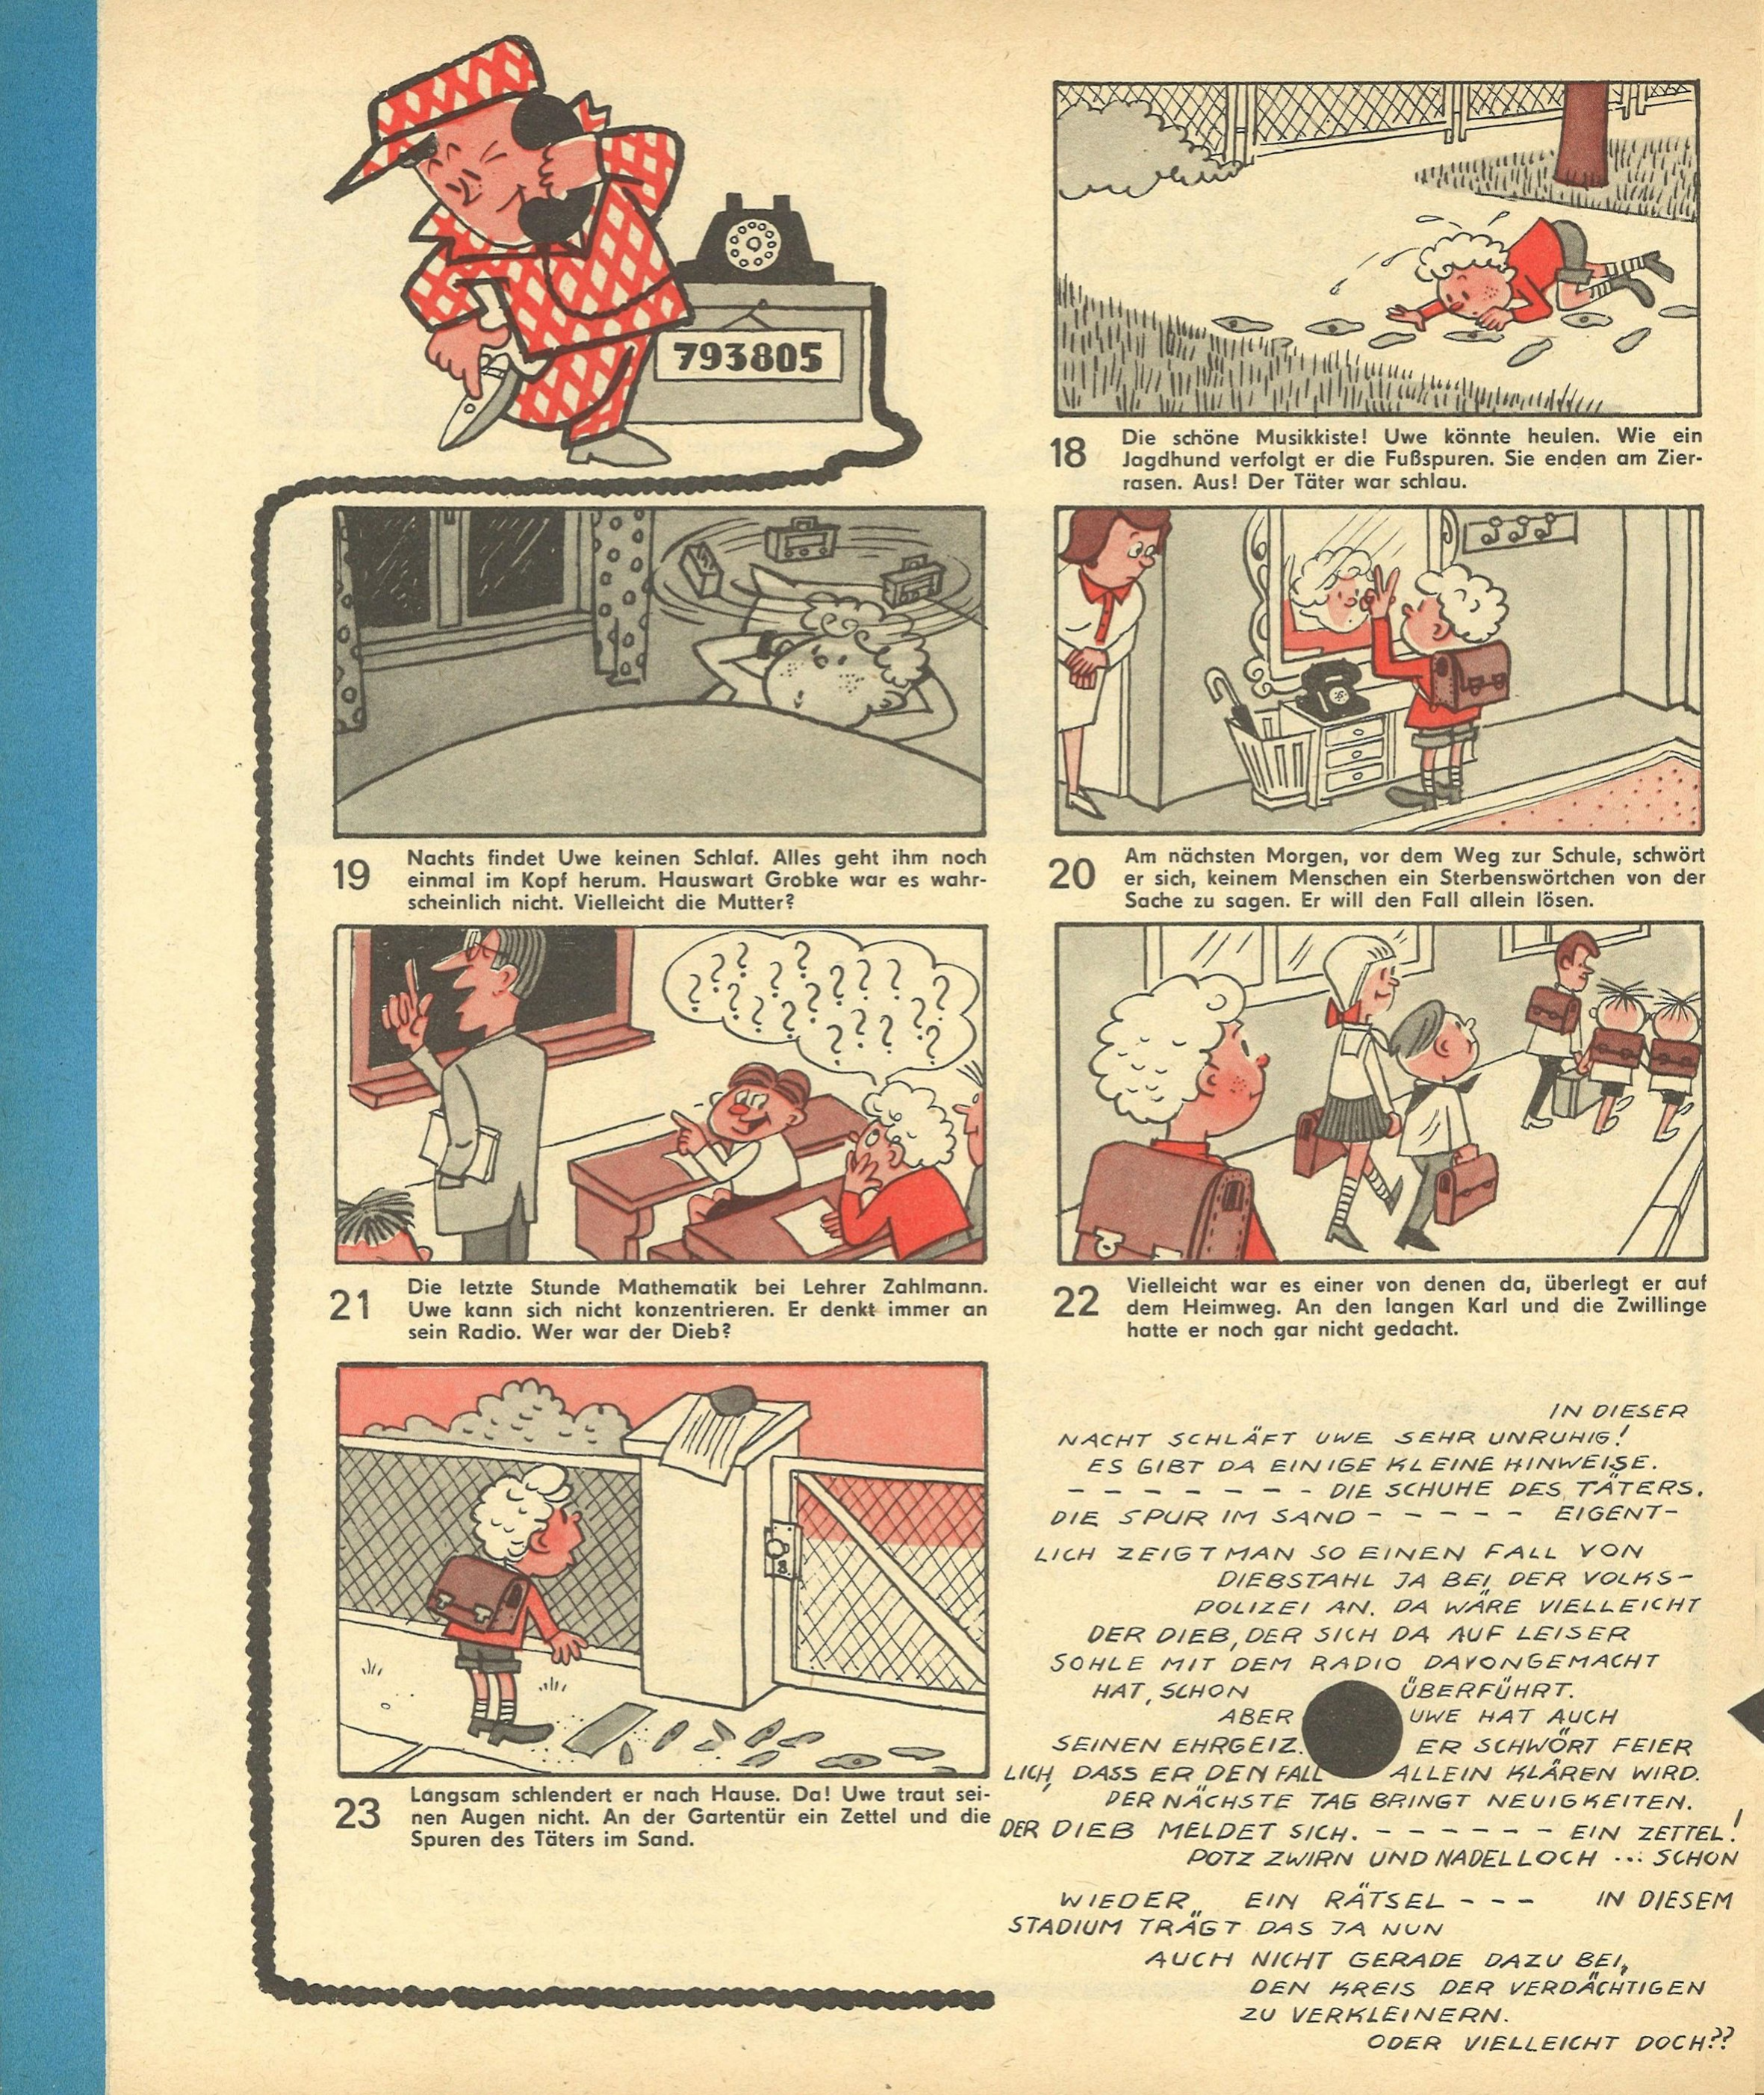 793805
18
Die schöne Musikkiste! Uwe könnte heulen. Wie ein
Jagdhund verfolgt er die Fußspuren. Sie enden am Zier-
rasen. Aus! Der Täter war schlau.
19
Nachts findet Uwe keinen Schlaf. Alles geht ihm noch
einmal im Kopf herum. Hauswart Grobke war es wahr-
scheinlich nicht. Vielleicht die Mutter?
20
Am nächsten Morgen, vor dem Weg zur Schule, schwört
er sich, keinem Menschen ein Sterbenswörtchen von der
Sache zu sagen. Er will den Fall allein lösen.
? ? ? ? ? ? ? ? ? ? ? ? ? ? ? ? ?
21
Die letzte Stunde Mathematik bei Lehrer Zahlmann.
Uwe kann sich nicht konzentrieren. Er denkt immer an
sein Radio. Wer war der Dieb?
22
Vielleicht war es einer von denen da, überlegt er auf
dem Heimweg. An den langen Karl und die Zwillinge
hatte er noch gar nicht gedacht.
23
Langsam schlendert er nach Hause. Da! Uwe traut sei-
nen Augen nicht. An der Gartentür ein Zettel und die
Spuren des Täters im Sand.
IN DIESER
NACHT SCHLÄFT UWE SEHR UNRUHIG!
ES GIBT DA EINIGE KLEINE HINWEISE.
- - - - - - - - DIE SCHUHE DES TÄTERS.
DIE SPUR IM SAND - - - - - EIGENT-
LICH ZEIGT MAN SO EINEN FALL VON
DIEBSTAHL JA BEI DER VOLKS-
POLIZEI AN. DA WÄRE VIELLEICHT
DER DIEB, DER SICH DA AUF LEISER
SOHLE MIT DEM RADIO DAVONGEMACHT
HAT, SCHON ÜBERFÜHRT.
ABER UWE HAT AUCH
SEINEN EHRGEIZ. ER SCHWÖRT FEIER
LICH, DASS ER DEN FALL ALLEIN KLÄREN WIRD.
DER NÄCHSTE TAG BRINGT NEUIGKEITEN.
DER DIEB MELDET SICH. - - - - - - EIN ZETTEL!
POTZ ZWIRN UND NADELLOCH ... SCHON
WIEDER EIN RÄTSEL - - - IN DIESEM
STADIUM TRÄGT DAS JA NUN
AUCH NICHT GERADE DAZU BEI,
DEN KREIS DER VERDÄCHTIGEN
ZU VERKLEINERN.
ODER VIELLEICHT DOCH??